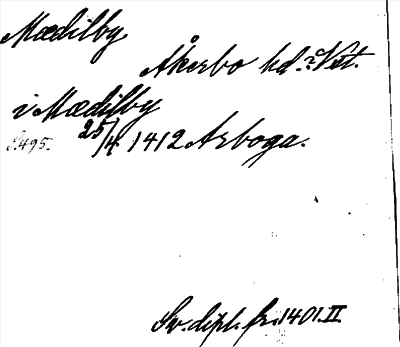 Mædilby
Åkerbo hd. ? Vst.
i Mædilby
S. 495. 25/4 1412 Arboga.
Sv. dipl. fr. 1401. II